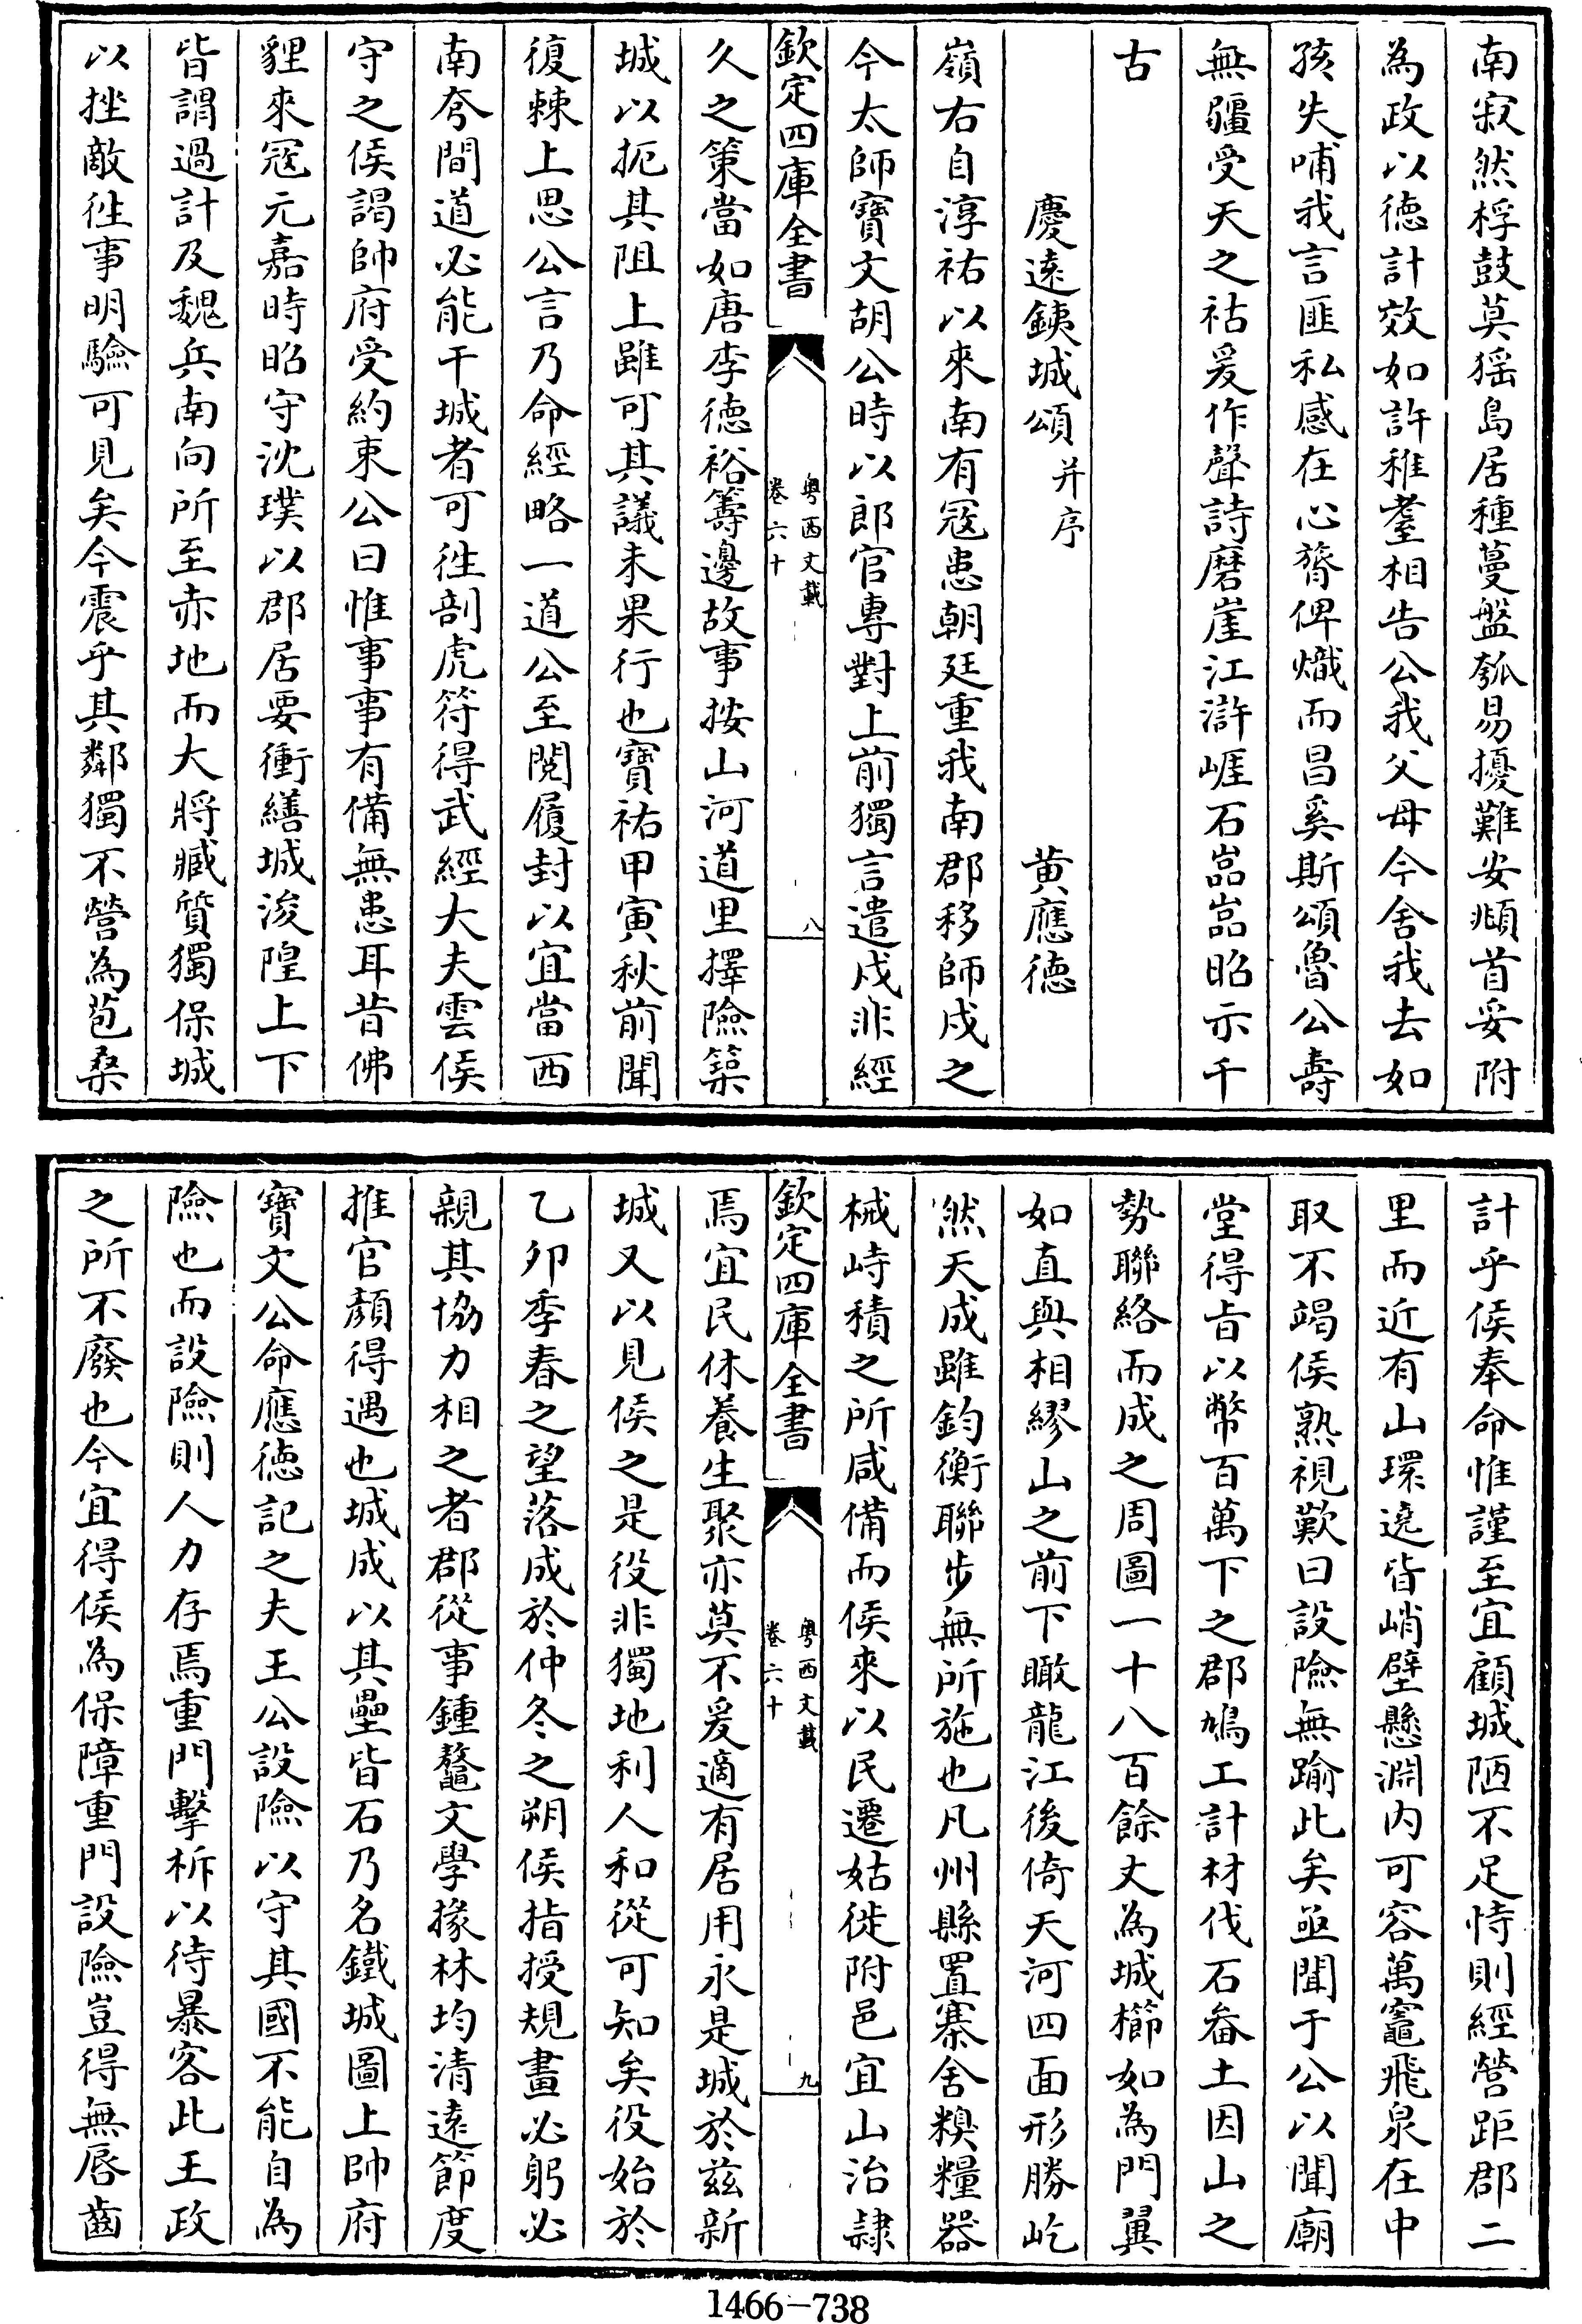 南寂然桴鼓莫猺島居種蔓盤瓠易擾難安頫首妥附
為政以徳計效如許稚耋相告公我父母今舍我去如
孩失哺我言匪私感在心膂俾熾而昌奚斯頌魯公壽
無疆受天之祜爰作聲詩磨崖江滸崕石嵓嵓昭示千
古
慶遠銕城頌并序 黄應徳
嶺右自淳祐以來南有寇患朝廷重我南郡移師戍之
今太師寶文胡公時以郎官專對上前獨言遣戍非經
欽定四庫全書 粤西文載 卷六十 八
久之策當如唐李徳裕籌邊故事按山河道里擇險築
城以扼其阻上雖可其議未果行也寶祐甲寅秋前聞
復棘上思公言乃命經略一道公至閱履封以宜當西
南夸間道必能干城者可徃剖虎符得武經大夫雲侯
守之侯謁帥府受約束公曰惟事事有備無患耳昔佛
貍來寇元嘉時昭守沈璞以郡居要衝繕城浚隍上下
皆謂過計及魏兵南向所至赤地而大將臧質獨保城
以挫敵徃事明驗可見矣今震乎其鄰獨不營為苞桑
計乎侯奉命惟謹至宜顧城陋不足恃則經營距郡二
里而近有山環遶皆峭壁懸淵内可容萬竈飛泉在中
取不竭侯熟視歎曰設險無踰此矣亟聞于公以聞廟
堂得旨以幣百萬下之郡鳩工計材伐石畚土因山之
勢聯絡而成之周圖一十八百餘丈為城櫛如為門翼
如直與相繆山之前下瞰龍江後倚天河四面形勝屹
然天成雖鈞衡聯步無所施也凡州縣置寨舍糗糧器
械峙積之所咸備而侯來以民遷姑徙附邑宜山治隷
欽定四庫全書 粤西文載 卷六十 九
焉宜民休養生聚亦莫不爰適有居用永是城於兹新
城又以見侯之是役非獨地利人和從可知矣役始於
乙卯季春之望落成於仲冬之朔侯指授規畫必躬必
親其協力相之者郡從事鍾鼇文學掾林均清遠節度
推官顏得遇也城成以其壘皆石乃名鐵城圖上帥府
寶文公命應徳記之夫王公設險以守其國不能自為
險也而設險則人力存焉重門擊柝以待暴客此王政
之所不廢也今宜得侯為保障重門設險豈得無唇齒
1466-738